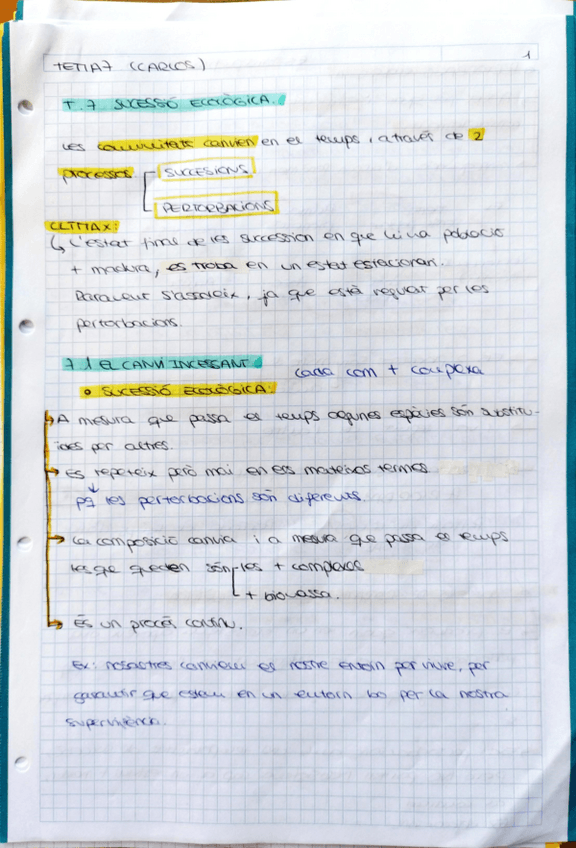 TEMA7 (CARLOS)
1
T.7 SUCESSIÓ ECOLÒGICA.
Les comunitats canvien en el temps, a través de 2
processos
SUCCESIONS
PERTORBACIONS
CLIMAX:
↳ L'estat final de les succession en que hi ha població
+ madura, es troba en un estat estacionari.
Rarament s'assoleix, ja que està regulat per les
pertorbacions.
7.1 EL CANVI INCESSANT
cada com + complexa
• SUCESSIÓ ECOLÒGICA:
→ A mesura que passa el temps algunes espècies són substitu-
ïdes per altres.
→ Es repeteix però mai en els mateixos termes
pq les perturbacions són diferents.
→ La composició canvia i a mesura que passa el temps
les que queden són les + complexes
+ biomassa.
→ És un procés continu.
Ex: nosaltres canviem el nostre entorn per viure, per
garantir que estem en un entorn bo per la nostra
supervivència.